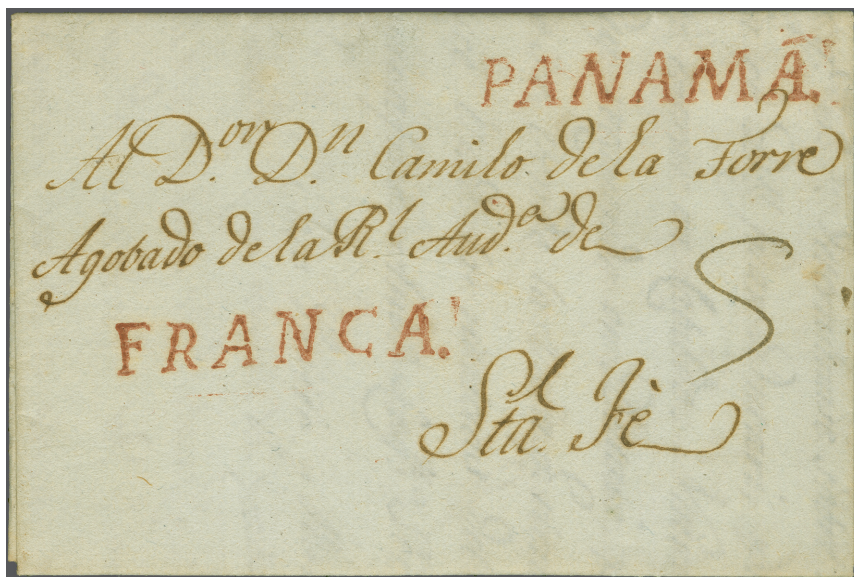 PANAMÁ.
Al D.or D.n Camilo de la Torre
Agobado de la R.l Aud.a de
FRANCA.
5
Sta. Fè